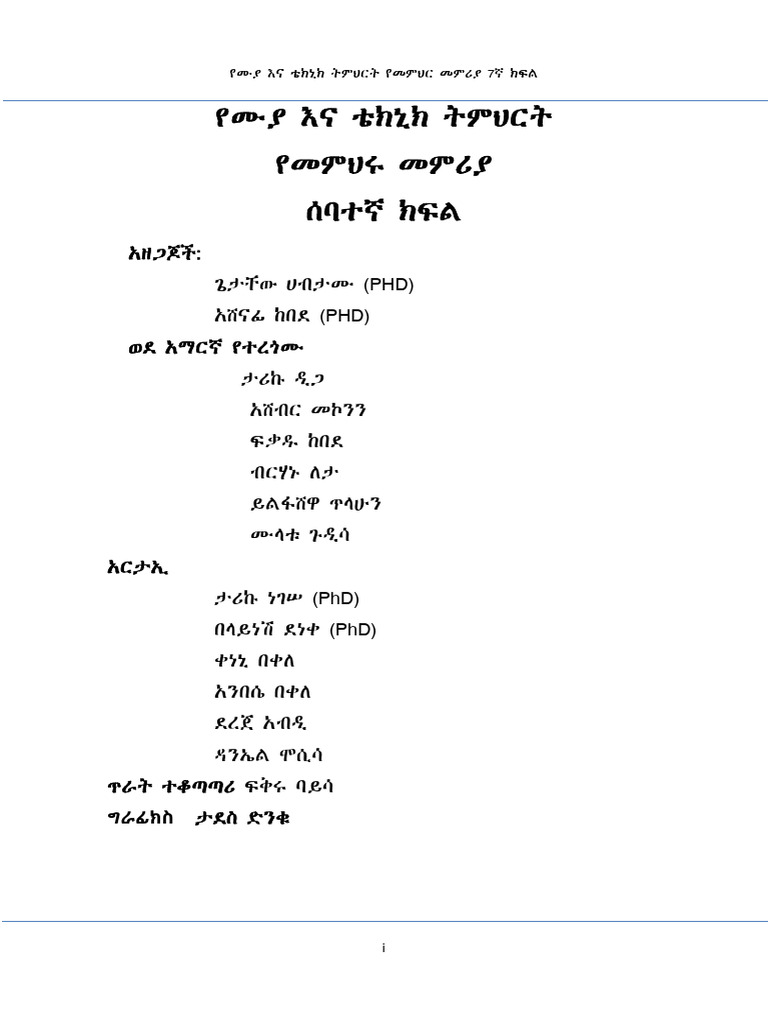 የሙያ እና ቴክኒክ ትምህርት የመምህር መምሪያ 7ኛ ክፍል
የሙያ እና ቴክኒክ ትምህርት
የመምህሩ መምሪያ
ሰባተኛ ክፍል
አዘጋጆች:
ጌታቸው ሀብታሙ (PHD)
አሸናፊ ከበደ (PHD)
ወደ አማርኛ የተረጎሙ
ታሪኩ ዲጋ
አሸብር መኮንን
ፍቃዱ ከበደ
ብርሃኑ ለታ
ይልፋሸዋ ጥላሁን
ሙላቱ ጉዲሳ
አርታኢ
ታሪኩ ነገሠ (PhD)
በላይነሽ ደነቀ (PhD)
ቀነኒ በቀለ
አንበሴ በቀለ
ደረጀ አብዲ
ዳንኤል ሞሲሳ
ጥራት ተቆጣጣሪ ፍቅሩ ባይሳ
ግራፊክስ ታደሰ ድንቁ
i